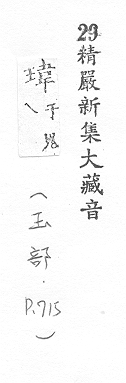 29精嚴新集大藏音
瑋于鬼
(玉部.P.715)